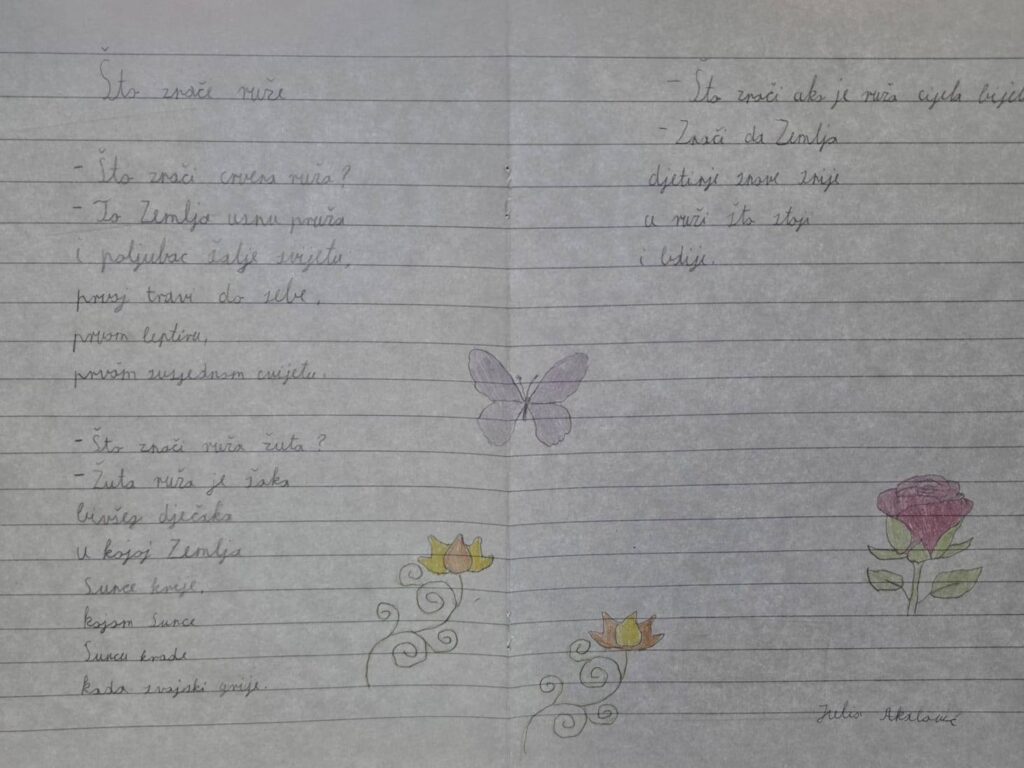 Što znače ruže
- Što znači crvena ruža?
- To Zemlja usnu pruža
i poljubac šalje svijetu,
prvoj travi do sebe,
prvom leptiru,
prvom susjednom cvijetu.
- Što znači ruža žuta?
- Žuta ruža je šaka
bivšeg dječaka
u kojoj Zemlja
Sunce krije,
kojom Sunce
Suncu krade
kada svojski grije.
- Što znači ako je ruža cijela bijel
- Znači da Zemlja
djetinje snove snije
u ruži što stoji
i bdije.